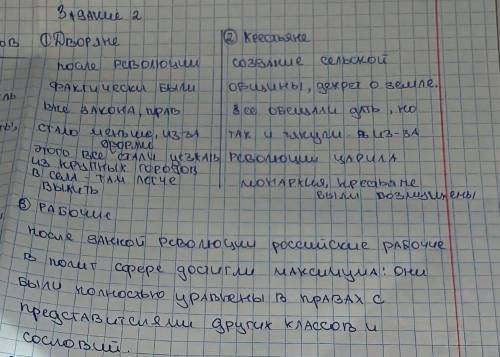 Задание 2
ов ① Дворяне
② Крестьяне
после революции
фактически были
вне закона, прав
стало меньше, из-за
этого все дворяне стали уезжать
из крупных городов
в сёла - там легче
выжить
создание сельской
общины, декрет о земле.
Все обещали дать, но
так и в из-за
революции царила
монархия, крестьяне
были возмущены
③ рабочие
после революции российские рабочие
в полит сфере достигли максимума: они
были полностью уравнены в правах с
представителями других классов и
сословий.